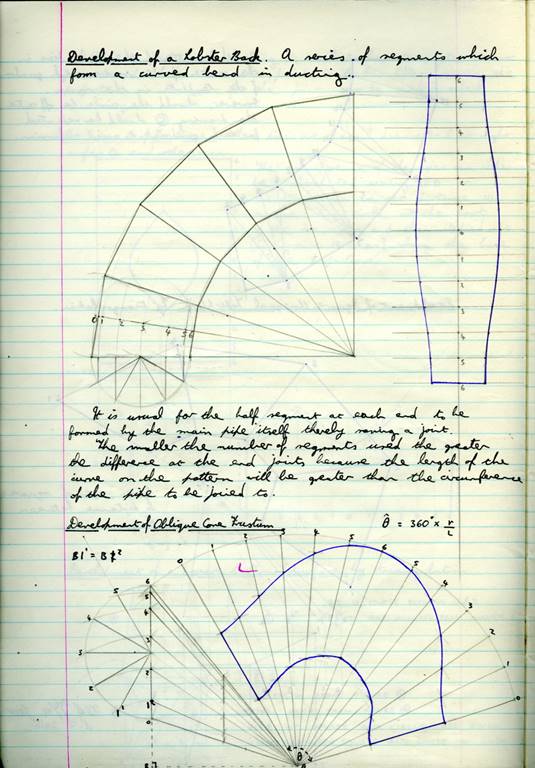 Development of a Lobster Back. A series of segments which
form a curved bend in ducting.
6
5
4
3
2
1
0
1
2
3
4
5
6
0 1 2 3 4 5 6
It is usual for the half segment at each end to be
formed by the main pipe itself thereby saving a joint.
The smaller the number of segments used the greater
the difference at the end joints because the length of the
curve on the pattern will be greater than the circumference
of the pipe to be joined to.
Development of Oblique Cone Frustum
θ̂ = 360° × r/L
B1' = B
0 1 2 3 4 5 6 5 4 3 2 1 0
L
6
5
5
4
4
3
3
2
2
1'
1
0
θ